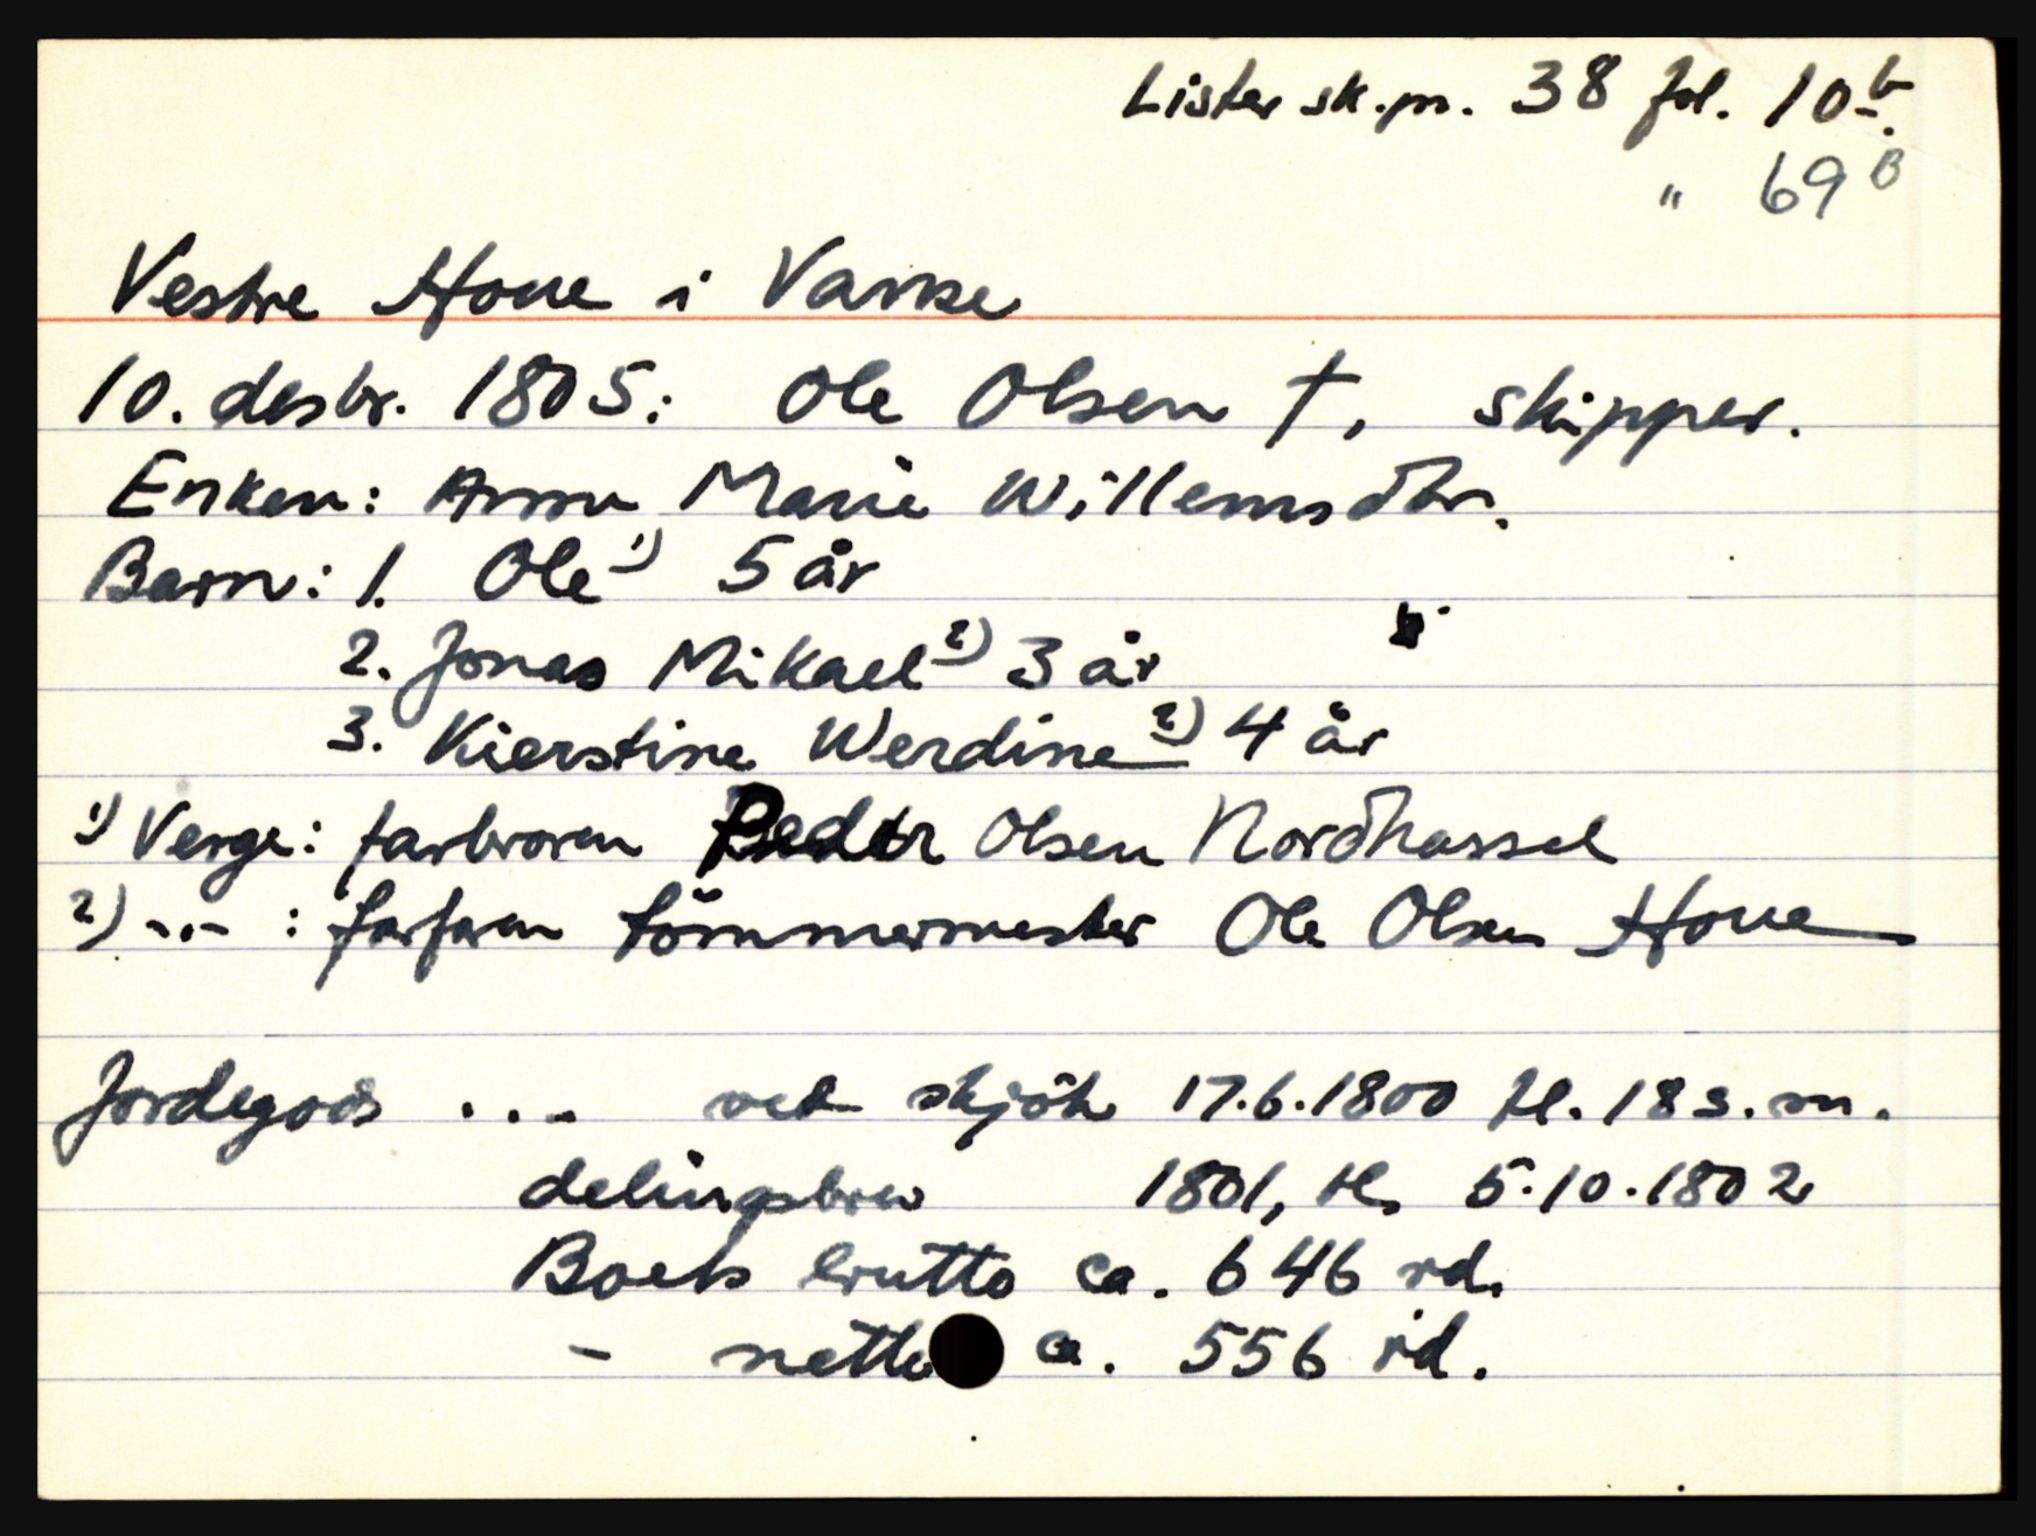 Lister sk.pr. 38 fol. 10b.
" 69B
Vestre Houe i Vanse
10. desbr. 1805: Ole Olsen †, skipper.
Enken: Anna Marie Willemsdtr.
Barn: 1. Ole 1) 5 år
2. Jonas Mikael 2) 3 år
3. Kierstine Werdine 2) 4 år
1) Verge: farbroren Peder Olsen Nordhassel
2) -"- : farfaren tömmermester Ole Olsen Houe
Jordegods ... ved skjöte 17.6.1800 tl. 18 s. m.
delingsbrev 1801, tl. 5.10.1802
Boets brutto ca. 646 rd.
- netto ca. 556 rd.